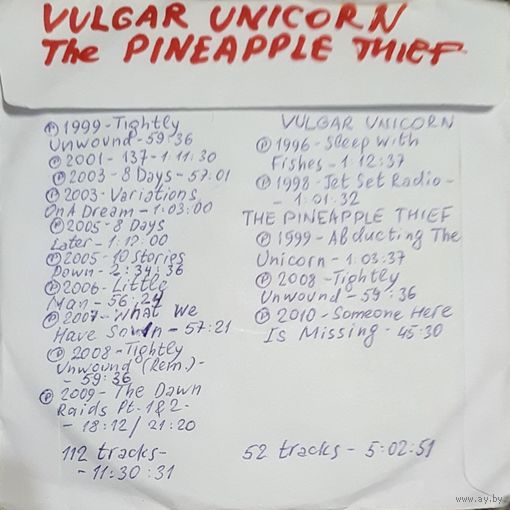 VULGAR UNICORN
The PINEAPPLE THIEF
Ⓟ 1999 - Tightly
Unwound - 59:36
Ⓟ 2001 - 137 - 1:11:30
Ⓟ 2003 - 8 Days - 57:01
Ⓟ 2003 - Variations
On A Dream - 1:03:00
Ⓟ 2005 - 8 Days
Later - 1:12:00
Ⓟ 2005 - 10 Stories
Down - 2:34:36
Ⓟ 2006 - Little
Man - 56:24
Ⓟ 2007 - What We
Have Sown - 57:21
Ⓟ 2008 - Tightly
Unwound (Rem.) -
- 59:36
Ⓟ 2009 - The Dawn
Raids Pt. 1&2 -
- 18:12 / 21:20
112 tracks -
- 11:30:31
VULGAR UNICORN
Ⓟ 1996 - Sleep With
Fishes - 1:12:37
Ⓟ 1998 - Jet Set Radio -
- 1:01:32
THE PINEAPPLE THIEF
Ⓟ 1999 - Abducting The
Unicorn - 1:03:37
Ⓟ 2008 - Tightly
Unwound - 59:36
Ⓟ 2010 - Someone Here
Is Missing - 45:30
52 tracks - 5:02:51
www.ay.by